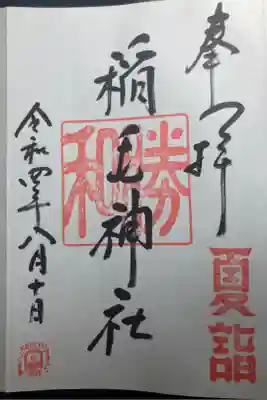 奉拝
夏詣
稲毛神社
勝和
令和四年八月十日